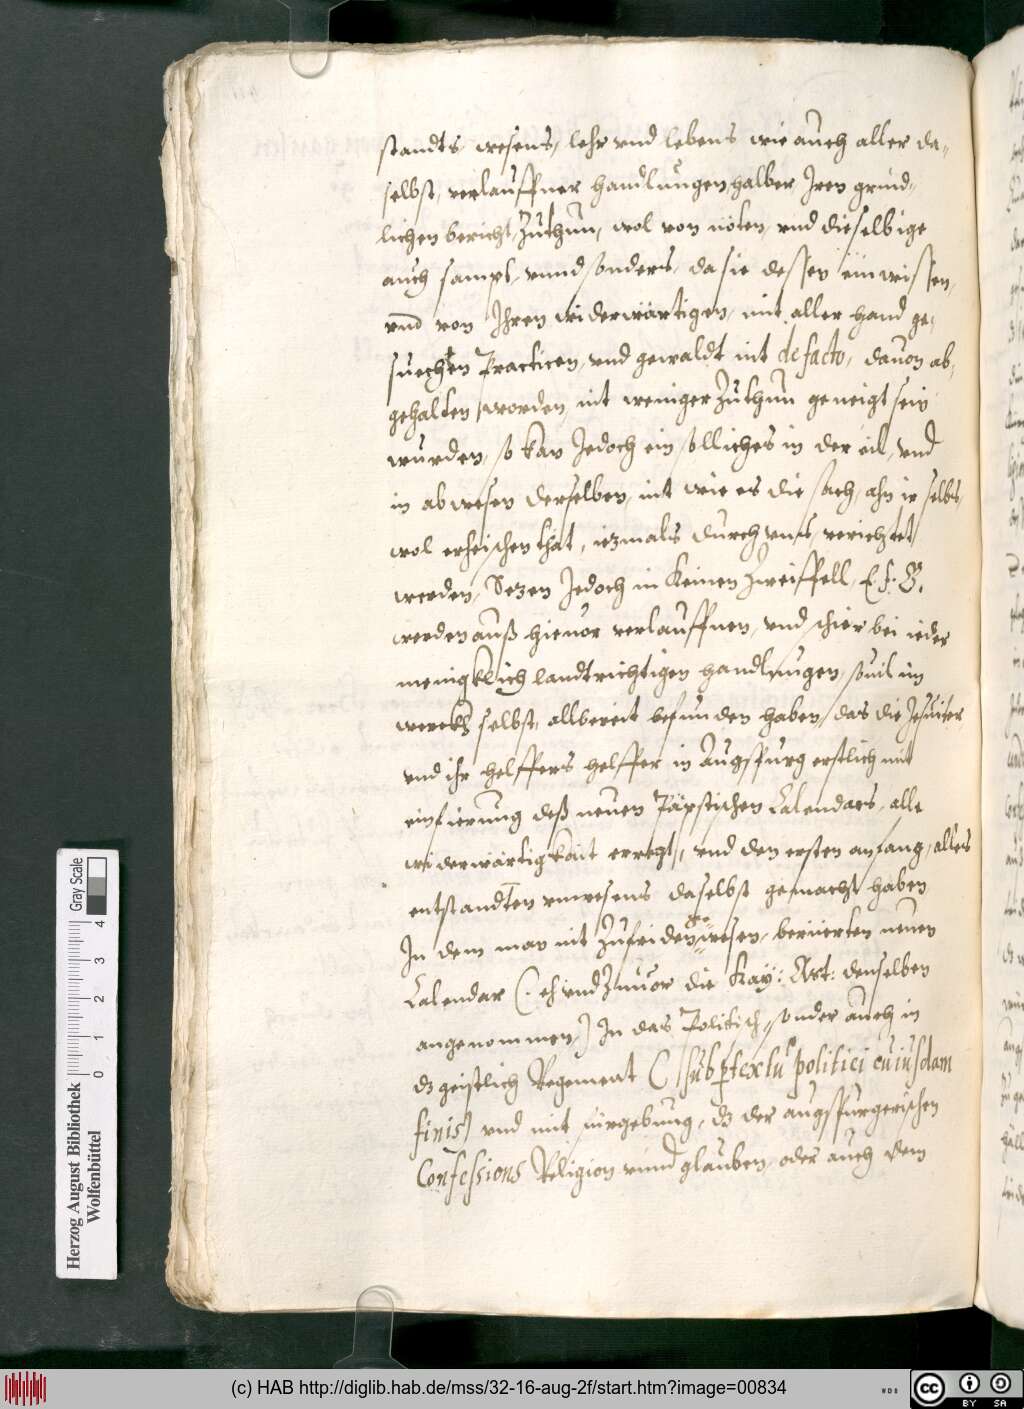 standts, wesens, lehr vnd lebens wie auch aller da-
selbst, verlauffner handlungen halber, Iren gründ-
lichen bericht, Zuthun, wol von nöten, vnd dieselbige
auch sampt, vnnd sonders, da sie dessen ein wissen,
vnd von Ihren widerwärtigen, mit aller hand ge-
suechten Practicen, vnd gewaldt mit de facto, dauon ab-
gehalten worden, nit weniger Zuthun geneigt sein
wurden, so kan Jedoch ein solliches in der eil, vnd
in abwesen derselben, nit wie es die sach, ahn ir selbs,
wol erheischen thät, iezmals durch vns, verichtet
werden, Sezen Jedoch in keinen Zweiffell, E. F. G.
werden auß hieuor verlauffnen, vnd schier bei ieder
menigklich landtrichtigen handlungen, souil im
werckh selbst, allbereit befunden haben, das die Jesuiter
vnd ihr helffers helffer in Augspurg erstlich mit
einfierung deß neuen Päpstischen Calendars, alle
widerwärtigkait erregt, vnd den ersten anfang, alles
entstandten vnwesens daselbst gemacht haben
In dem man mit Zufriden gewesen, berüerten neuen
Calendar (: eh vnd Zuuor die Kay: Mt: denselben
angenommen) In das Politisch, sonder auch in
dz geistlich Regement (sub prtextu politici cuiusdam
finis) vnd mit fürgebung, dz der augspurgerischen
Confessions Religion vnnd glauben, oder auch dem
Herzog August Bibliothek
Wolfenbüttel
0 1 2 3 4
Gray Scale
(c) HAB http://diglib.hab.de/mss/32-16-aug-2f/start.htm?image=00834
WDB
cc BY SA